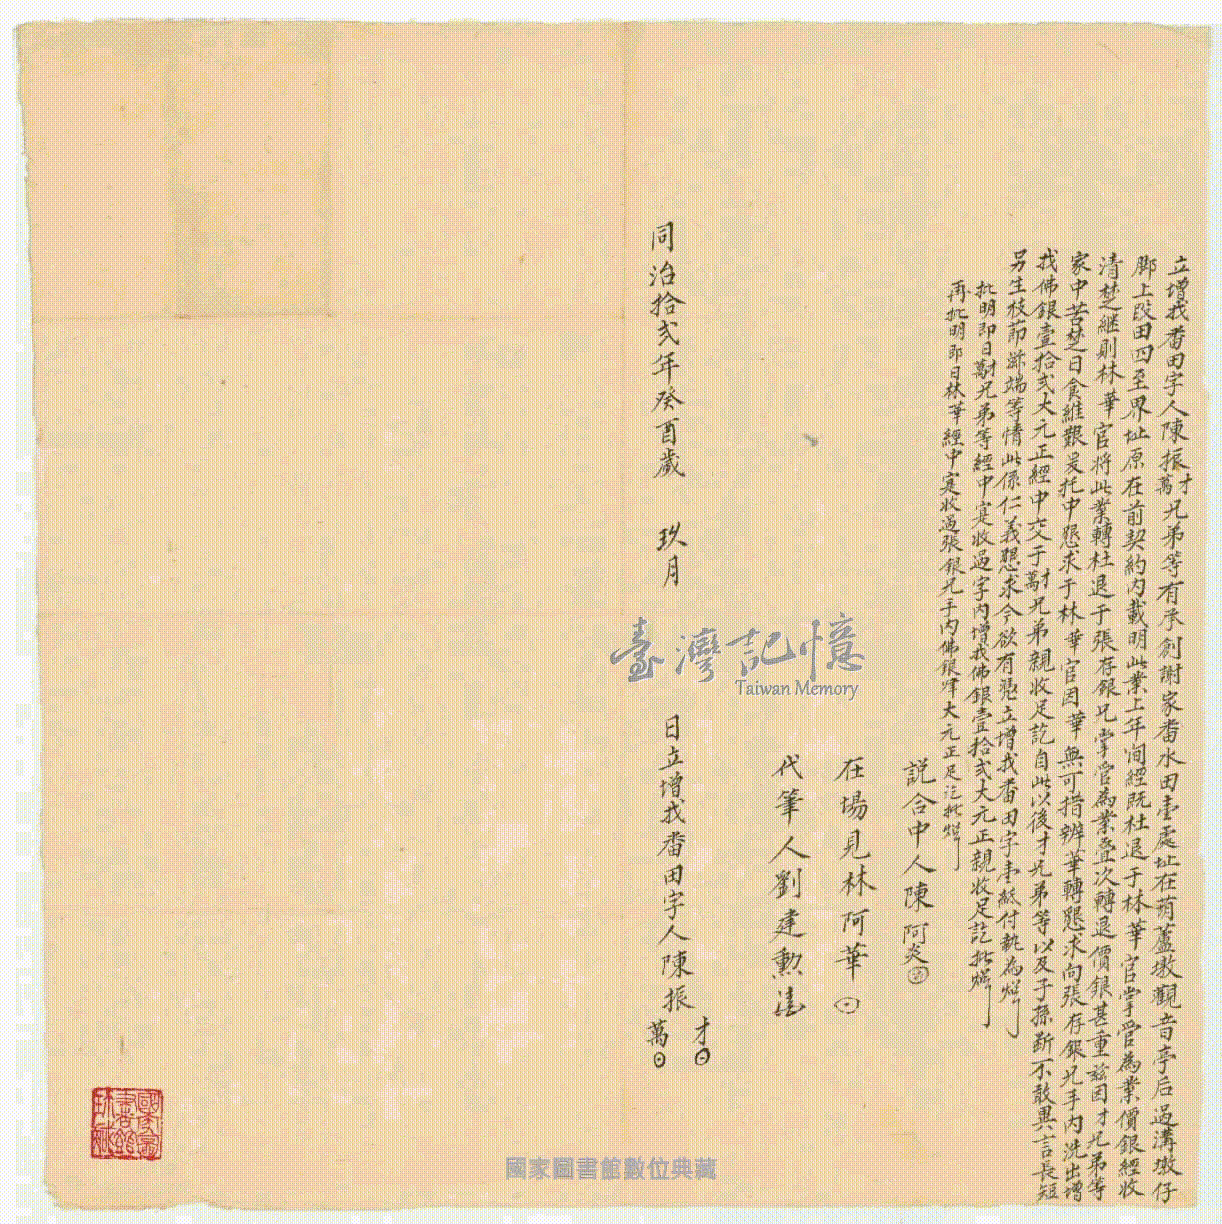 立增找番田字人陳振才萬兄弟等有承創謝家番水田壹處址在葫蘆墩觀音亭后過溝墩仔
腳上段田四至界址原在前契約內載明此業上年間經既杜退于林華官掌管為業價銀經收
清楚繼則林華官將此業轉杜退于張存銀兄掌管為業疊次轉退價銀甚重茲因才兄弟等
家中苦楚日食維艱爰托中懇求于林華官因華無可措辨華轉懇求向張存銀兄手內洗出增
找佛銀壹拾弍大元正經中交于才萬兄弟親收足訖自此以後才兄弟等以及子孫斷不敢異言長短
另生枝節滋端等情此係仁義懇求今欲有憑立增找番田字壹紙付執為炤
批明即日才萬兄弟等經中寔收過字內增找佛銀壹拾弍大元正親收足訖批炤
再批明即日林華經中寔收過張銀兄手內佛銀肆大元正足訖批炤
説合中人陳阿炎
在場見林阿華
代筆人劉建勲
同治拾弍年癸酉歲 玖月 日立增找番田字人陳振才萬
臺灣記憶
Taiwan Memory
國家圖書館數位典藏
國家圖書館珍藏